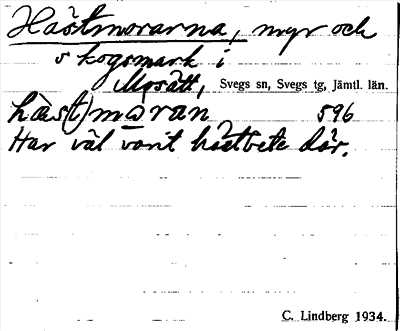 Hästmorarna, myr och
skogsmark i
Mosätt, Svegs sn, Svegs tg, Jämtl. län.
hàs(t)mo̱ran 596
Har väl varit hästbete där.
C. Lindberg 1934.